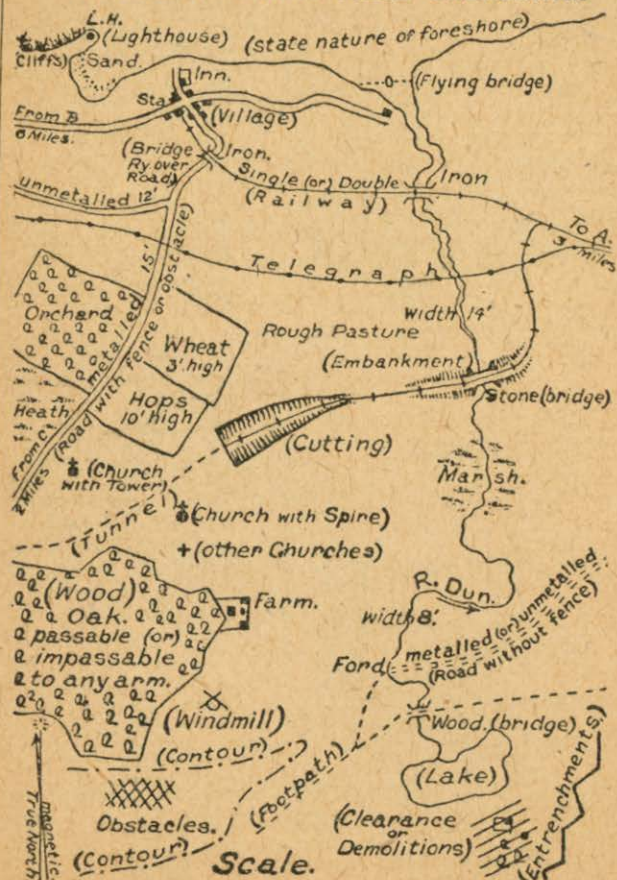 L.H.
(Lighthouse)
(state nature of foreshore)
(Cliffs)
Sand.
Inn.
(Flying bridge)
Sta
From B
6 Miles.
(Village)
(Bridge
Ry. over
Road)
Iron.
Single (or) Double
(Railway)
Iron
unmetalled 12'
To A.
3 Miles
Telegraph
15'
metalled
(Road with fence or obstacle)
Orchard
Width 14'
Wheat
3' high
Rough Pasture
(Embankment)
Stone (bridge)
Hops
10' high
Heath
From C
2 Miles
(Cutting)
(Church
with Tower)
Marsh.
(Tunnel)
(Church with Spire)
(other Churches)
(Wood)
Oak.
passable (or)
impassable
to any arm.
Farm.
R. Dun.
width 8'.
metalled (or) unmetalled
(Road without fence)
Ford
(Windmill)
Wood. (bridge)
(Contour)
(Footpath)
(Lake)
Obstacles.
(Clearance
or
Demolitions)
(Entrenchments)
magnetic
True North
(Contour)
Scale.